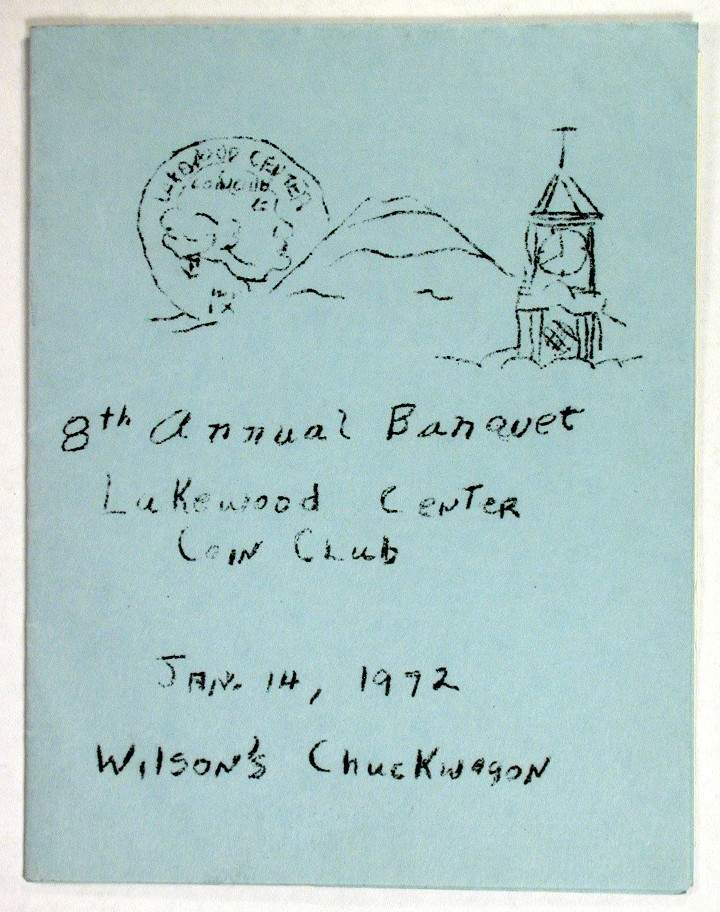 LAKEWOOD CENTER
COIN CLUB
8th Annual Banquet
Lakewood Center
Coin Club
Jan. 14, 1972
Wilson's Chuckwagon